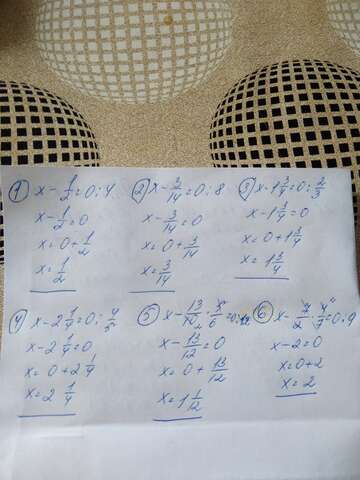 1 x - 1/2 = 0 : 4
x - 1/2 = 0
x = 0 + 1/2
x = 1/2
2 x - 3/14 = 0 : 8
x - 3/14 = 0
x = 0 + 3/14
x = 3/14
3 x - 1 3/4 = 0 : 2/3
x - 1 3/4 = 0
x = 0 + 1 3/4
x = 1 3/4
4 x - 2 1/4 = 0 : 4/5
x - 2 1/4 = 0
x = 0 + 2 1/4
x = 2 1/4
5
x - 13/12 = 0
x = 0 + 13/12
x = 1 1/12
6
x - 2 = 0
x = 0 + 2
x = 2